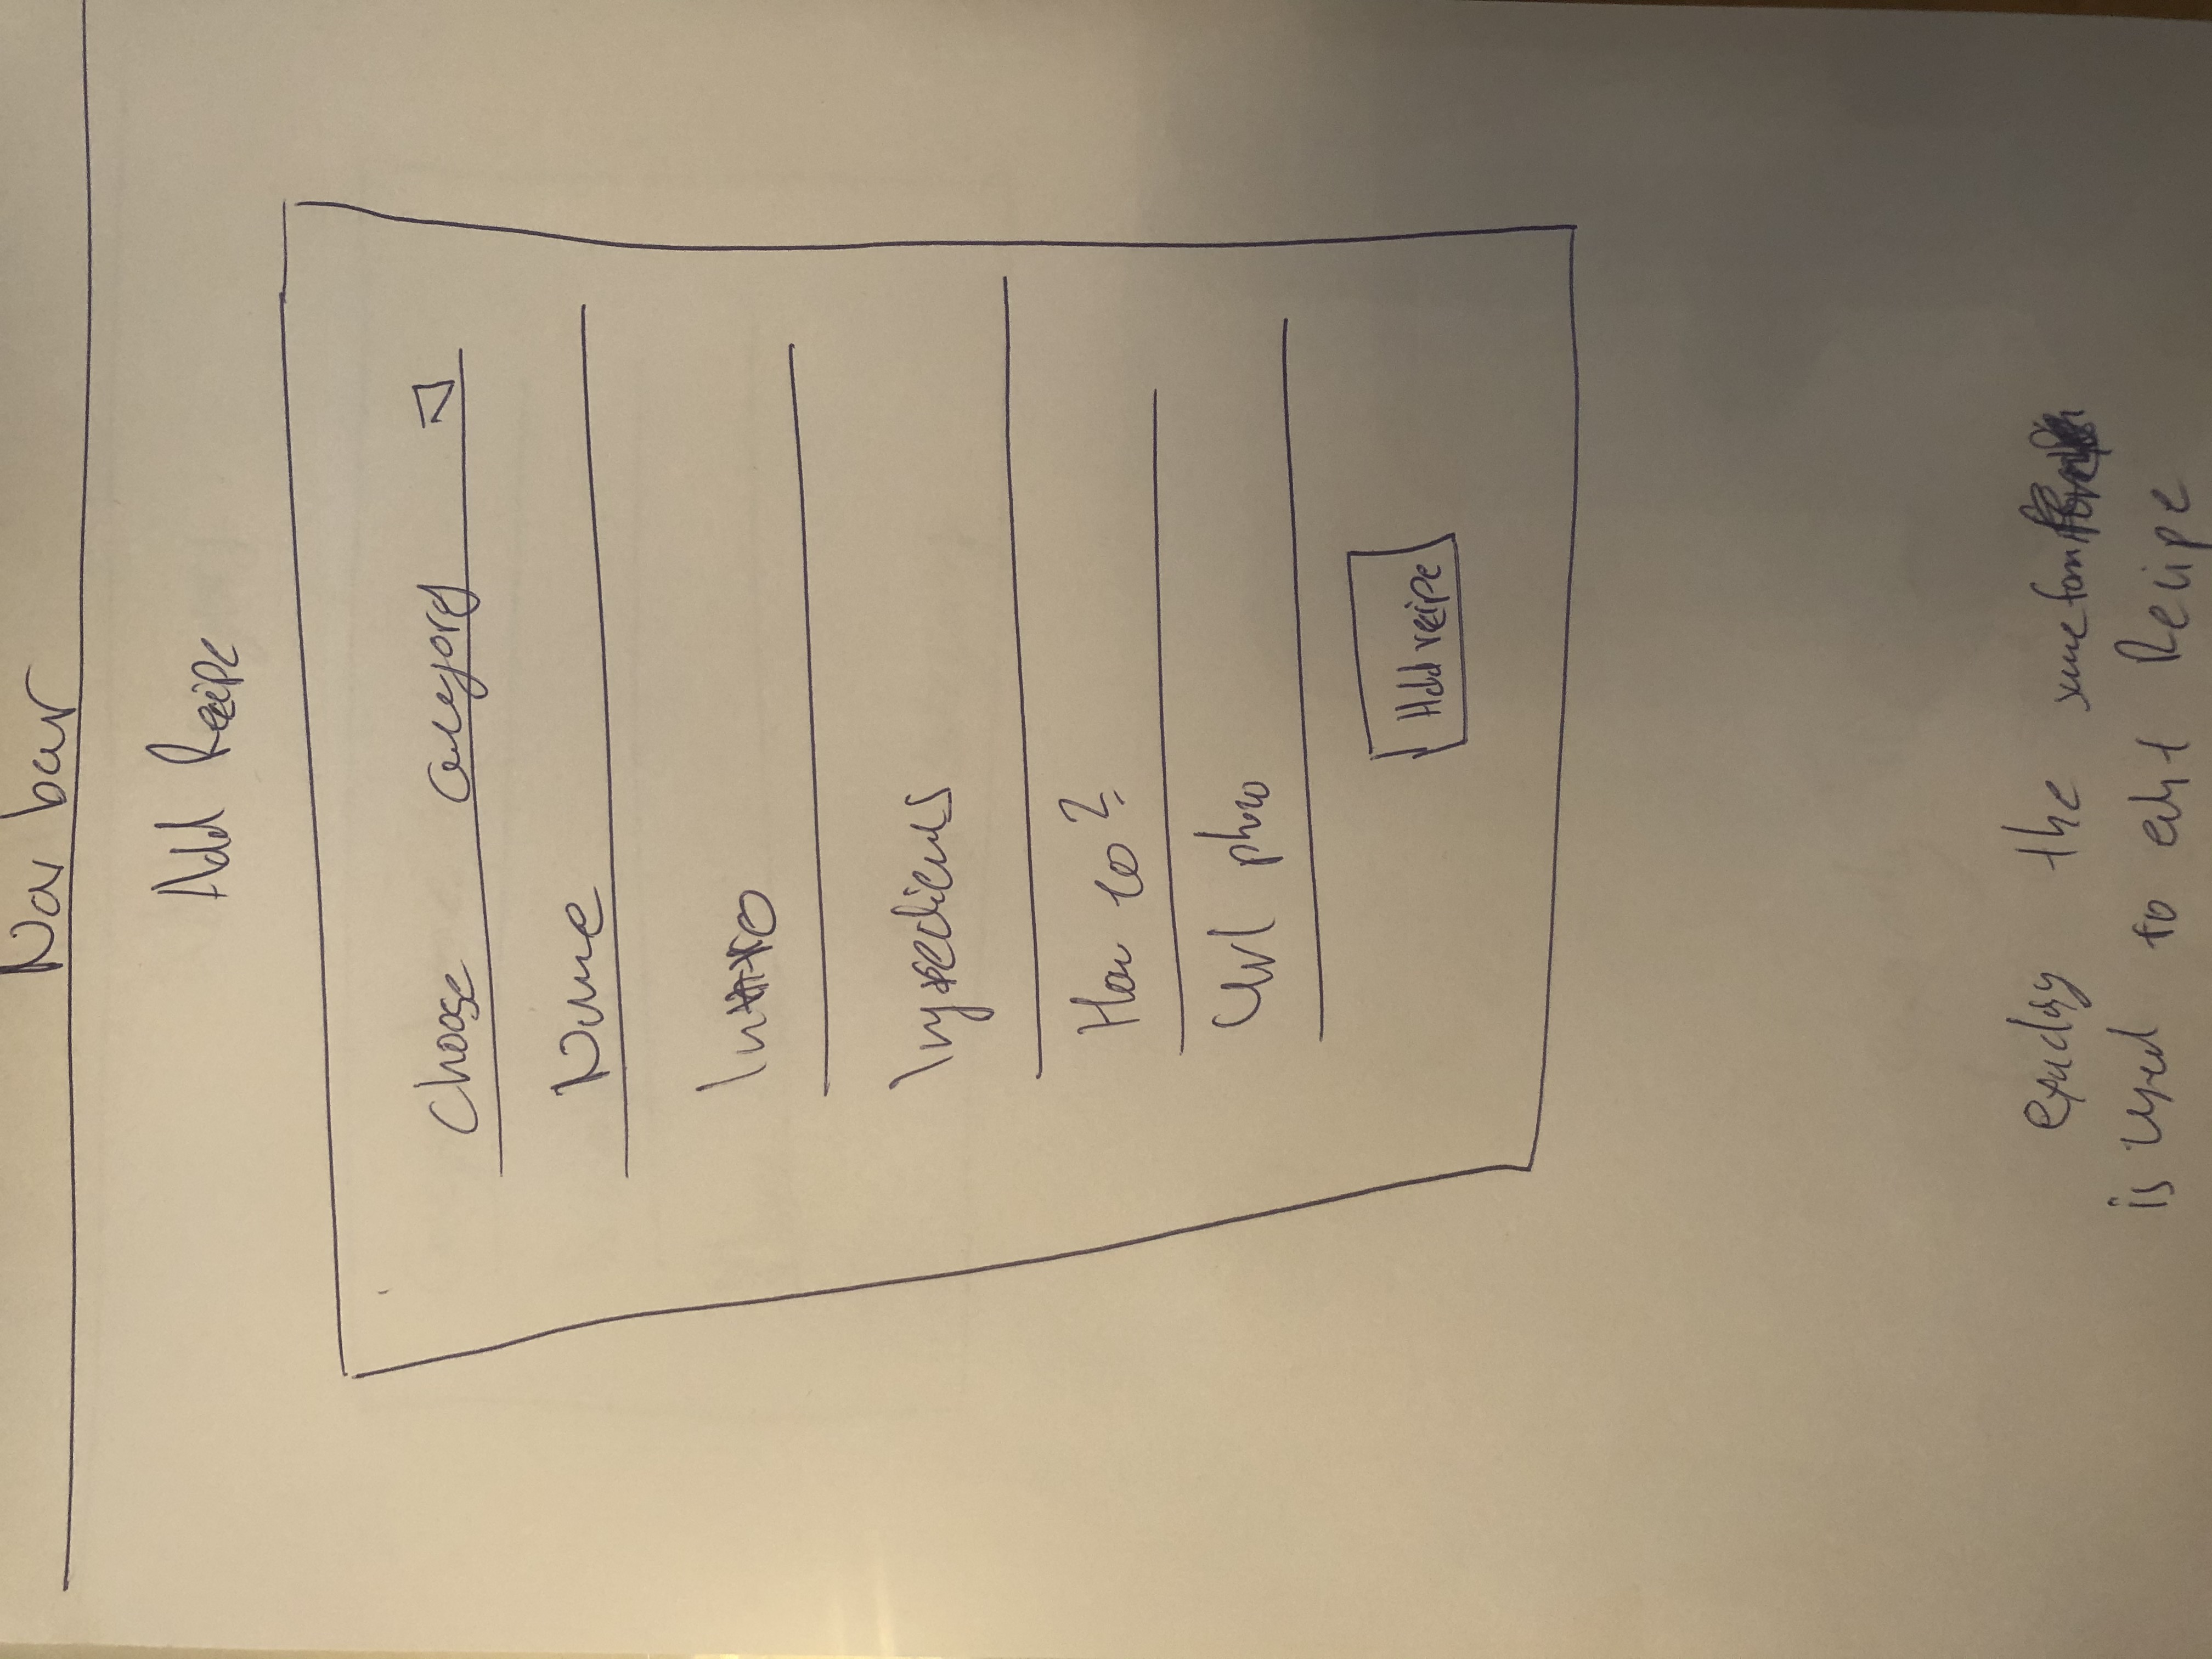 Nav bar
Add Recipe
Choose Category
Name
Intro
Ingredients
How to?
Url photo
Add recipe
exactly the same form
is used to edit Recipe